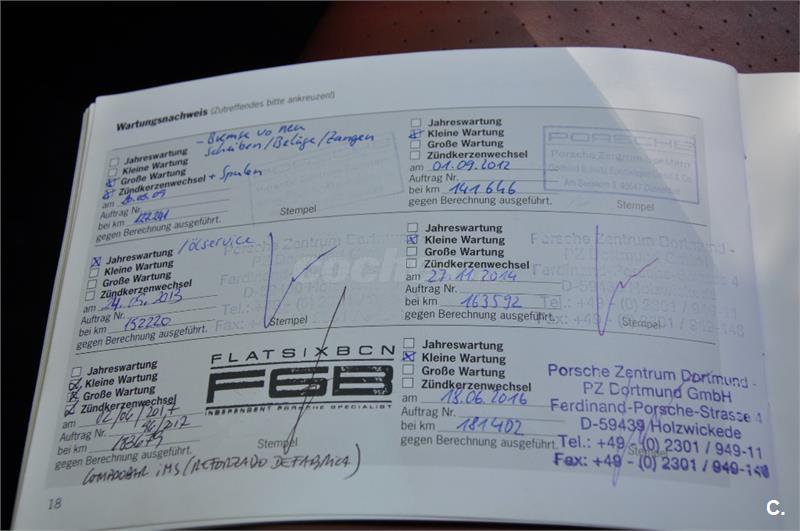 Wartungsnachweis (Zutreffendes bitte ankreuzen!)
- Bremse vo neu
Scheiben/Beläge/Zangen
Jahreswartung
Kleine Wartung
Große Wartung
Zündkerzenwechsel + Spulen
am
Auftrag Nr.
bei km
gegen Berechnung ausgeführt.
Stempel
Jahreswartung
Kleine Wartung
Große Wartung
Zündkerzenwechsel
am 01.09.2012
Auftrag Nr.
bei km 141646
gegen Berechnung ausgeführt.
PORSCHE
Porsche Zentrum
Stempel
Jahreswartung /ölservice
Kleine Wartung
Große Wartung
Zündkerzenwechsel
am 24.05.2013
Auftrag Nr.
bei km 152220
gegen Berechnung ausgeführt.
Porsche Zentrum Dortmund
Stempel
coch
Jahreswartung
Kleine Wartung
Große Wartung
Zündkerzenwechsel
am 27.11.2014
Auftrag Nr.
bei km 163592
gegen Berechnung ausgeführt.
Porsche Zentrum Dortmund -
Tel.: +49 - (0) 2301 / 949-11
Fax: +49 - (0) 2301 / 949-148
Stempel
Jahreswartung
Kleine Wartung
Große Wartung
Zündkerzenwechsel
am
Auftrag Nr.
bei km
gegen Berechnung ausgeführt.
FLATSIXBCN
F6B
INDEPENDENT PORSCHE SPECIALIST
Stempel
iMS (REFORZADO DE FABRICA)
Jahreswartung
Kleine Wartung
Große Wartung
Zündkerzenwechsel
am 18.06.2016
Auftrag Nr.
bei km 181402
gegen Berechnung ausgeführt.
Porsche Zentrum Dortmund -
PZ Dortmund GmbH
Ferdinand-Porsche-Strasse 4
D-59439 Holzwickede
Tel.: +49 - (0) 2301 / 949-11
Fax: +49 - (0) 2301 / 949-148
Stempel
18
C.